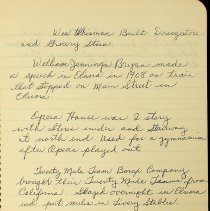 Wes Wiseman Built Drugstore
and Grocery Store.
William Jennings Bryan made
a speech in Elnora in 1908 on Train
that stopped on Main Street in
Elnora
Opera House was 2 story
with Stores under and Stairway
at north end. Used for a gymnasium
after Opera played out
Twenty Mule Team Borax Company
brought their Twenty Mule Teams from
California. Stayed overnight in Elnora
and put mules in Livery Stables.